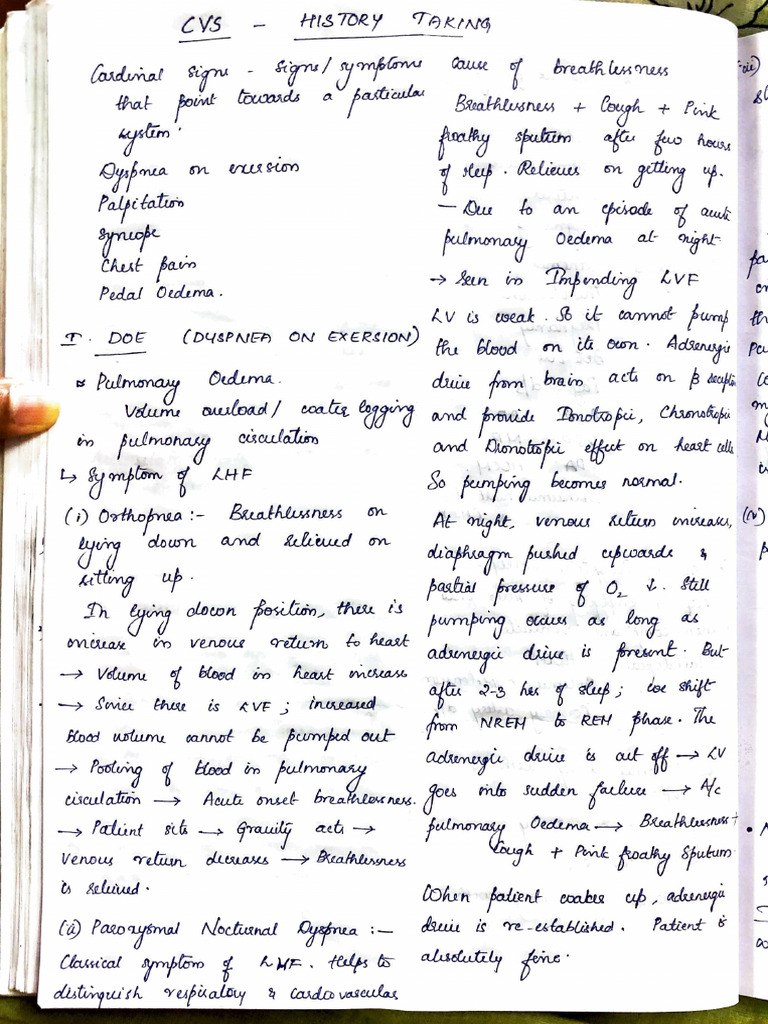 CVS - HISTORY TAKING
Cardinal signs - signs/symptoms
that point towards a particular
system.
Dyspnea on exersion
Palpitation
Syncope
Chest pain
Pedal Oedema.
I. DOE (DYSPNEA ON EXERSION)
Pulmonary Oedema.
Volume overload/ water logging
in pulmonary circulation
↳ Symptom of LHF
(i) Orthopnea :- Breathlessness on
lying down and relieved on
sitting up.
In lying down position, there is
increase in venous return to heart
→ Volume of blood in heart increase
→ Since there is LVF ; increased
blood volume cannot be pumped out
→ Pooling of blood in pulmonary
circulation → Acute onset breathlessness.
→ Patient sits → Gravity acts →
venous return decreases → Breathlessness
is relieved.
(ii) Paroxysmal Nocturnal Dyspnea :-
Classical symptom of LHF. Helps to
distinguish respiratory & cardiovascular
cause of breathlessness
Breathlessness + Cough + Pink
froathy sputum after few hours
of sleep. Relieves on getting up.
- Due to an episode of acute
pulmonary Oedema at night.
→ Seen in Impending LVF
LV is weak. So it cannot pump
the blood on its own. Adrenergic
drive from brain acts on β receptors
and provide Ionotropic, Chronotropic
and Dromotropic effect on heart cells
So pumping becomes normal.
At night, venous return increases,
diaphragm pushed upwards &
partial pressure of O₂ ↓. Still
pumping occurs as long as
adrenergic drive is present. But
after 2-3 hrs of sleep; we shift
from NREM to REM phase. The
adrenergic drive is cut off → LV
goes into sudden failure → A/c
pulmonary Oedema → Breathlessness +
Cough + Pink froathy Sputum.
When patient wakes up, adrenergic
drive is re-established. Patient is
absolutely fine.